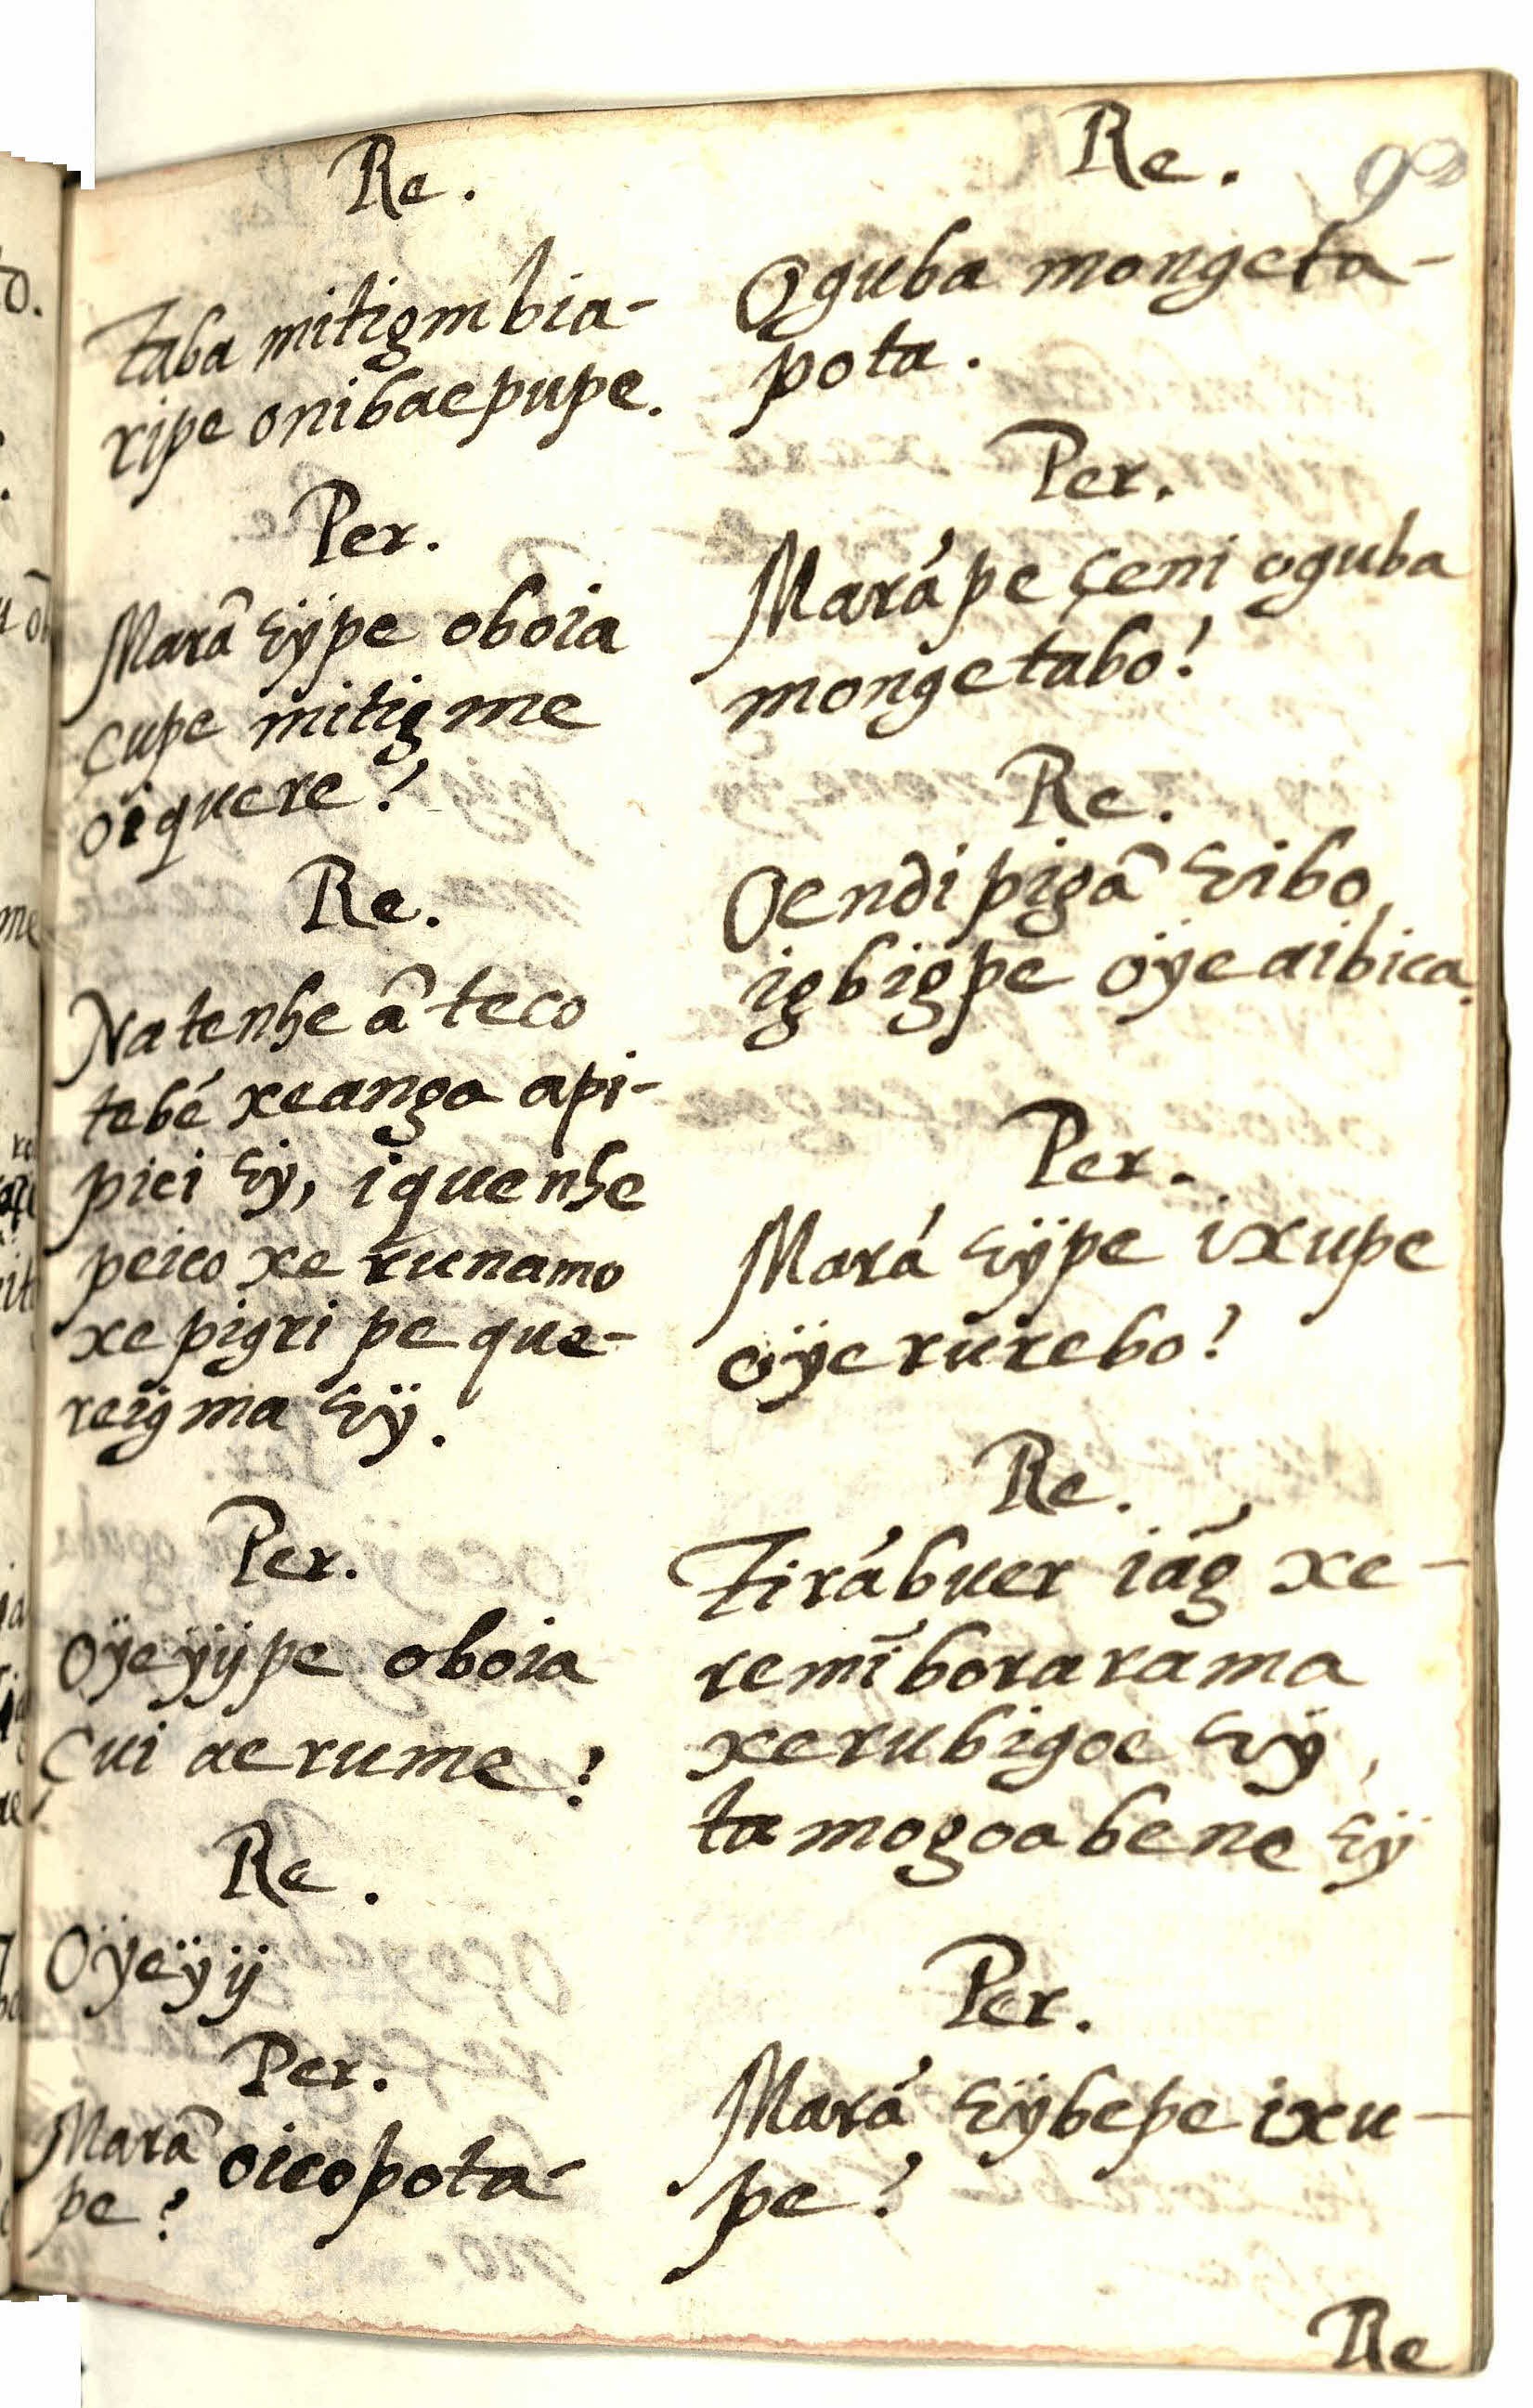 Re.
Taba mitigmbia-
ripe onibaepupe.
Per.
Marâ eÿpe oboia
çupe mitigme
oiquere?
Re.
Natenhe â teco
tebé xeanga api-
pici eÿ, iquenhe
peico xe runamo
xe pigri pe que-
reigma eÿ.
Per.
Oÿeÿijpe oboia
çui aerume?
Re.
Oÿeÿij
Per.
Marâ oicopota-
pe?
Re.
Oguba mongeta-
pota.
Per.
Marápe çeni oguba
mongetabo?
Re.
Oendipigâ eibo,
igbigpe oÿeaibica.
Per.
Mará eÿpe ixupe
oÿerurebo?
Re.
Tirábuer iãg xe-
remĩborarama
xerubigoe eÿ,
ta mogoabene eÿ
Per.
Mará eÿbepe ixu-
pe?
Re